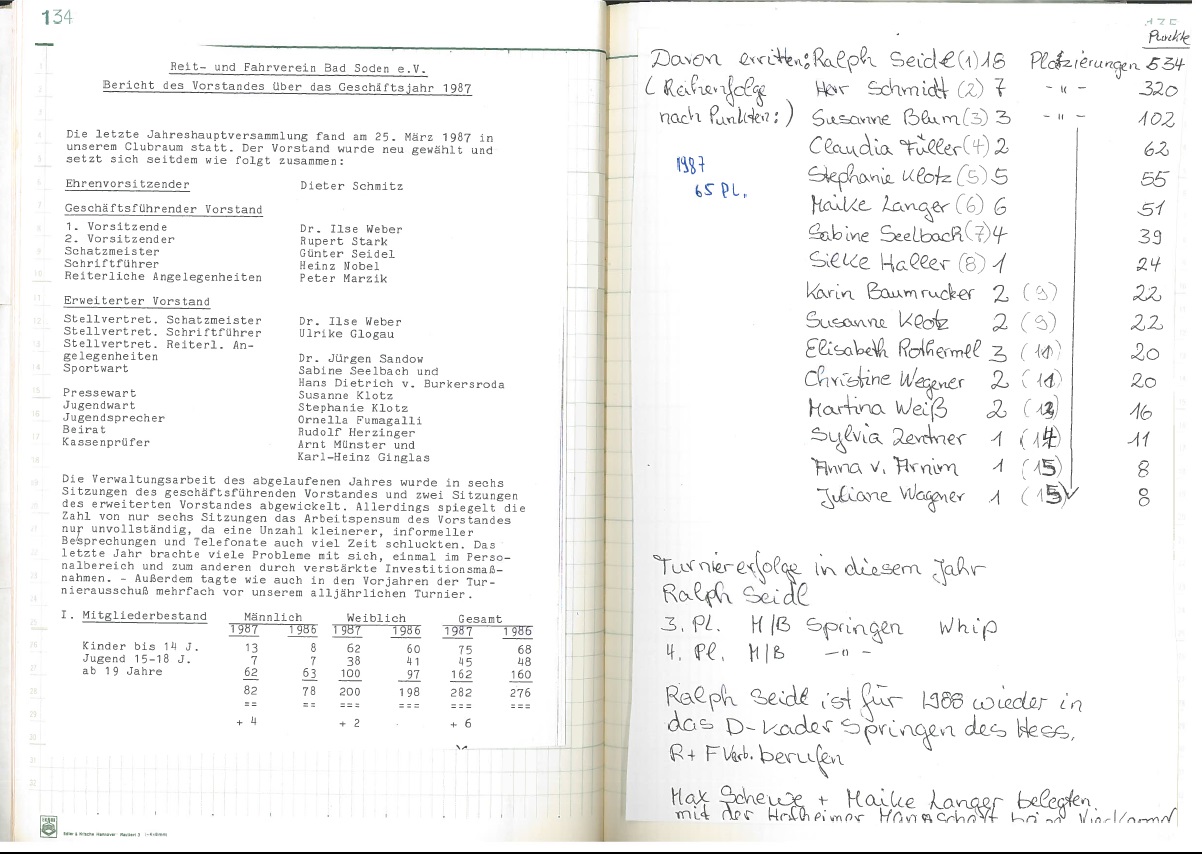 134
Reit- und Fahrverein Bad Soden e.V.
Bericht des Vorstandes über das Geschäftsjahr 1987
Die letzte Jahreshauptversammlung fand am 25. März 1987 in
unserem Clubraum statt. Der Vorstand wurde neu gewählt und
setzt sich seitdem wie folgt zusammen:
Ehrenvorsitzender Dieter Schmitz
Geschäftsführender Vorstand
1. Vorsitzende Dr. Ilse Weber
2. Vorsitzender Rupert Stark
Schatzmeister Günter Seidel
Schriftführer Heinz Nobel
Reiterliche Angelegenheiten Peter Marzik
Erweiterter Vorstand
Stellvertret. Schatzmeister Dr. Ilse Weber
Stellvertret. Schriftführer Ulrike Glogau
Stellvertret. Reiterl. An-
gelegenheiten Dr. Jürgen Sandow
Sportwart Sabine Seelbach und
Hans Dietrich v. Burkersroda
Pressewart Susanne Klotz
Jugendwart Stephanie Klotz
Jugendsprecher Ornella Fumagalli
Beirat Rudolf Herzinger
Kassenprüfer Arnt Münster und
Karl-Heinz Ginglas
Die Verwaltungsarbeit des abgelaufenen Jahres wurde in sechs
Sitzungen des geschäftsführenden Vorstandes und zwei Sitzungen
des erweiterten Vorstandes abgewickelt. Allerdings spiegelt die
Zahl von nur sechs Sitzungen das Arbeitspensum des Vorstandes
nur unvollständig, da eine Unzahl kleinerer, informeller
Besprechungen und Telefonate auch viel Zeit schluckten. Das
letzte Jahr brachte viele Probleme mit sich, einmal im Perso-
nalbereich und zum anderen durch verstärkte Investitionsmaß-
nahmen. - Außerdem tagte wie auch in den Vorjahren der Tur-
nierausschuß mehrfach vor unserem alljährlichen Turnier.
I. Mitgliederbestand Männlich Weiblich Gesamt
1987 1986 1987 1986 1987 1986
Kinder bis 14 J. 13 8 62 60 75 68
Jugend 15-18 J. 7 7 38 41 45 48
ab 19 Jahre 62 63 100 97 162 160
82 78 200 198 282 276
== == === === === ===
+ 4 + 2 + 6
Punkte
Davon erritten: Ralph Seidl (1) 16 Platzierungen 534
(Reihenfolge Herr Schmidt (2) 7 -"- 320
nach Punkten:) Susanne Blum (3) 3 -"- 102
Claudia Füller (4) 2 62
1987
65 Pl.
Stephanie Klotz (5) 5 55
Maike Langer (6) 6 51
Sabine Seelbach (7) 4 39
Silke Haller (8) 1 24
Karin Baumrucker 2 (9) 22
Susanne Klotz 2 (9) 22
Elisabeth Rothermel 3 (11) 20
Christine Wegener 2 (11) 20
Martina Weiß 2 (13) 16
Sylvia Zentner 1 (14) 11
Anna v. Arnim 1 (15) 8
Juliane Wagener 1 (15) 8
Turniererfolge in diesem Jahr
Ralph Seidl
3. Pl. M/B Springen Whip
4. Pl. M/B -"-
Ralph Seidl ist für 1988 wieder in
das D-Kader Springen des Hess.
R+F Verb. berufen
Max Schewe + Maike Langer belegten
mit der Hofheimer Mannschaft beim Vierkampf